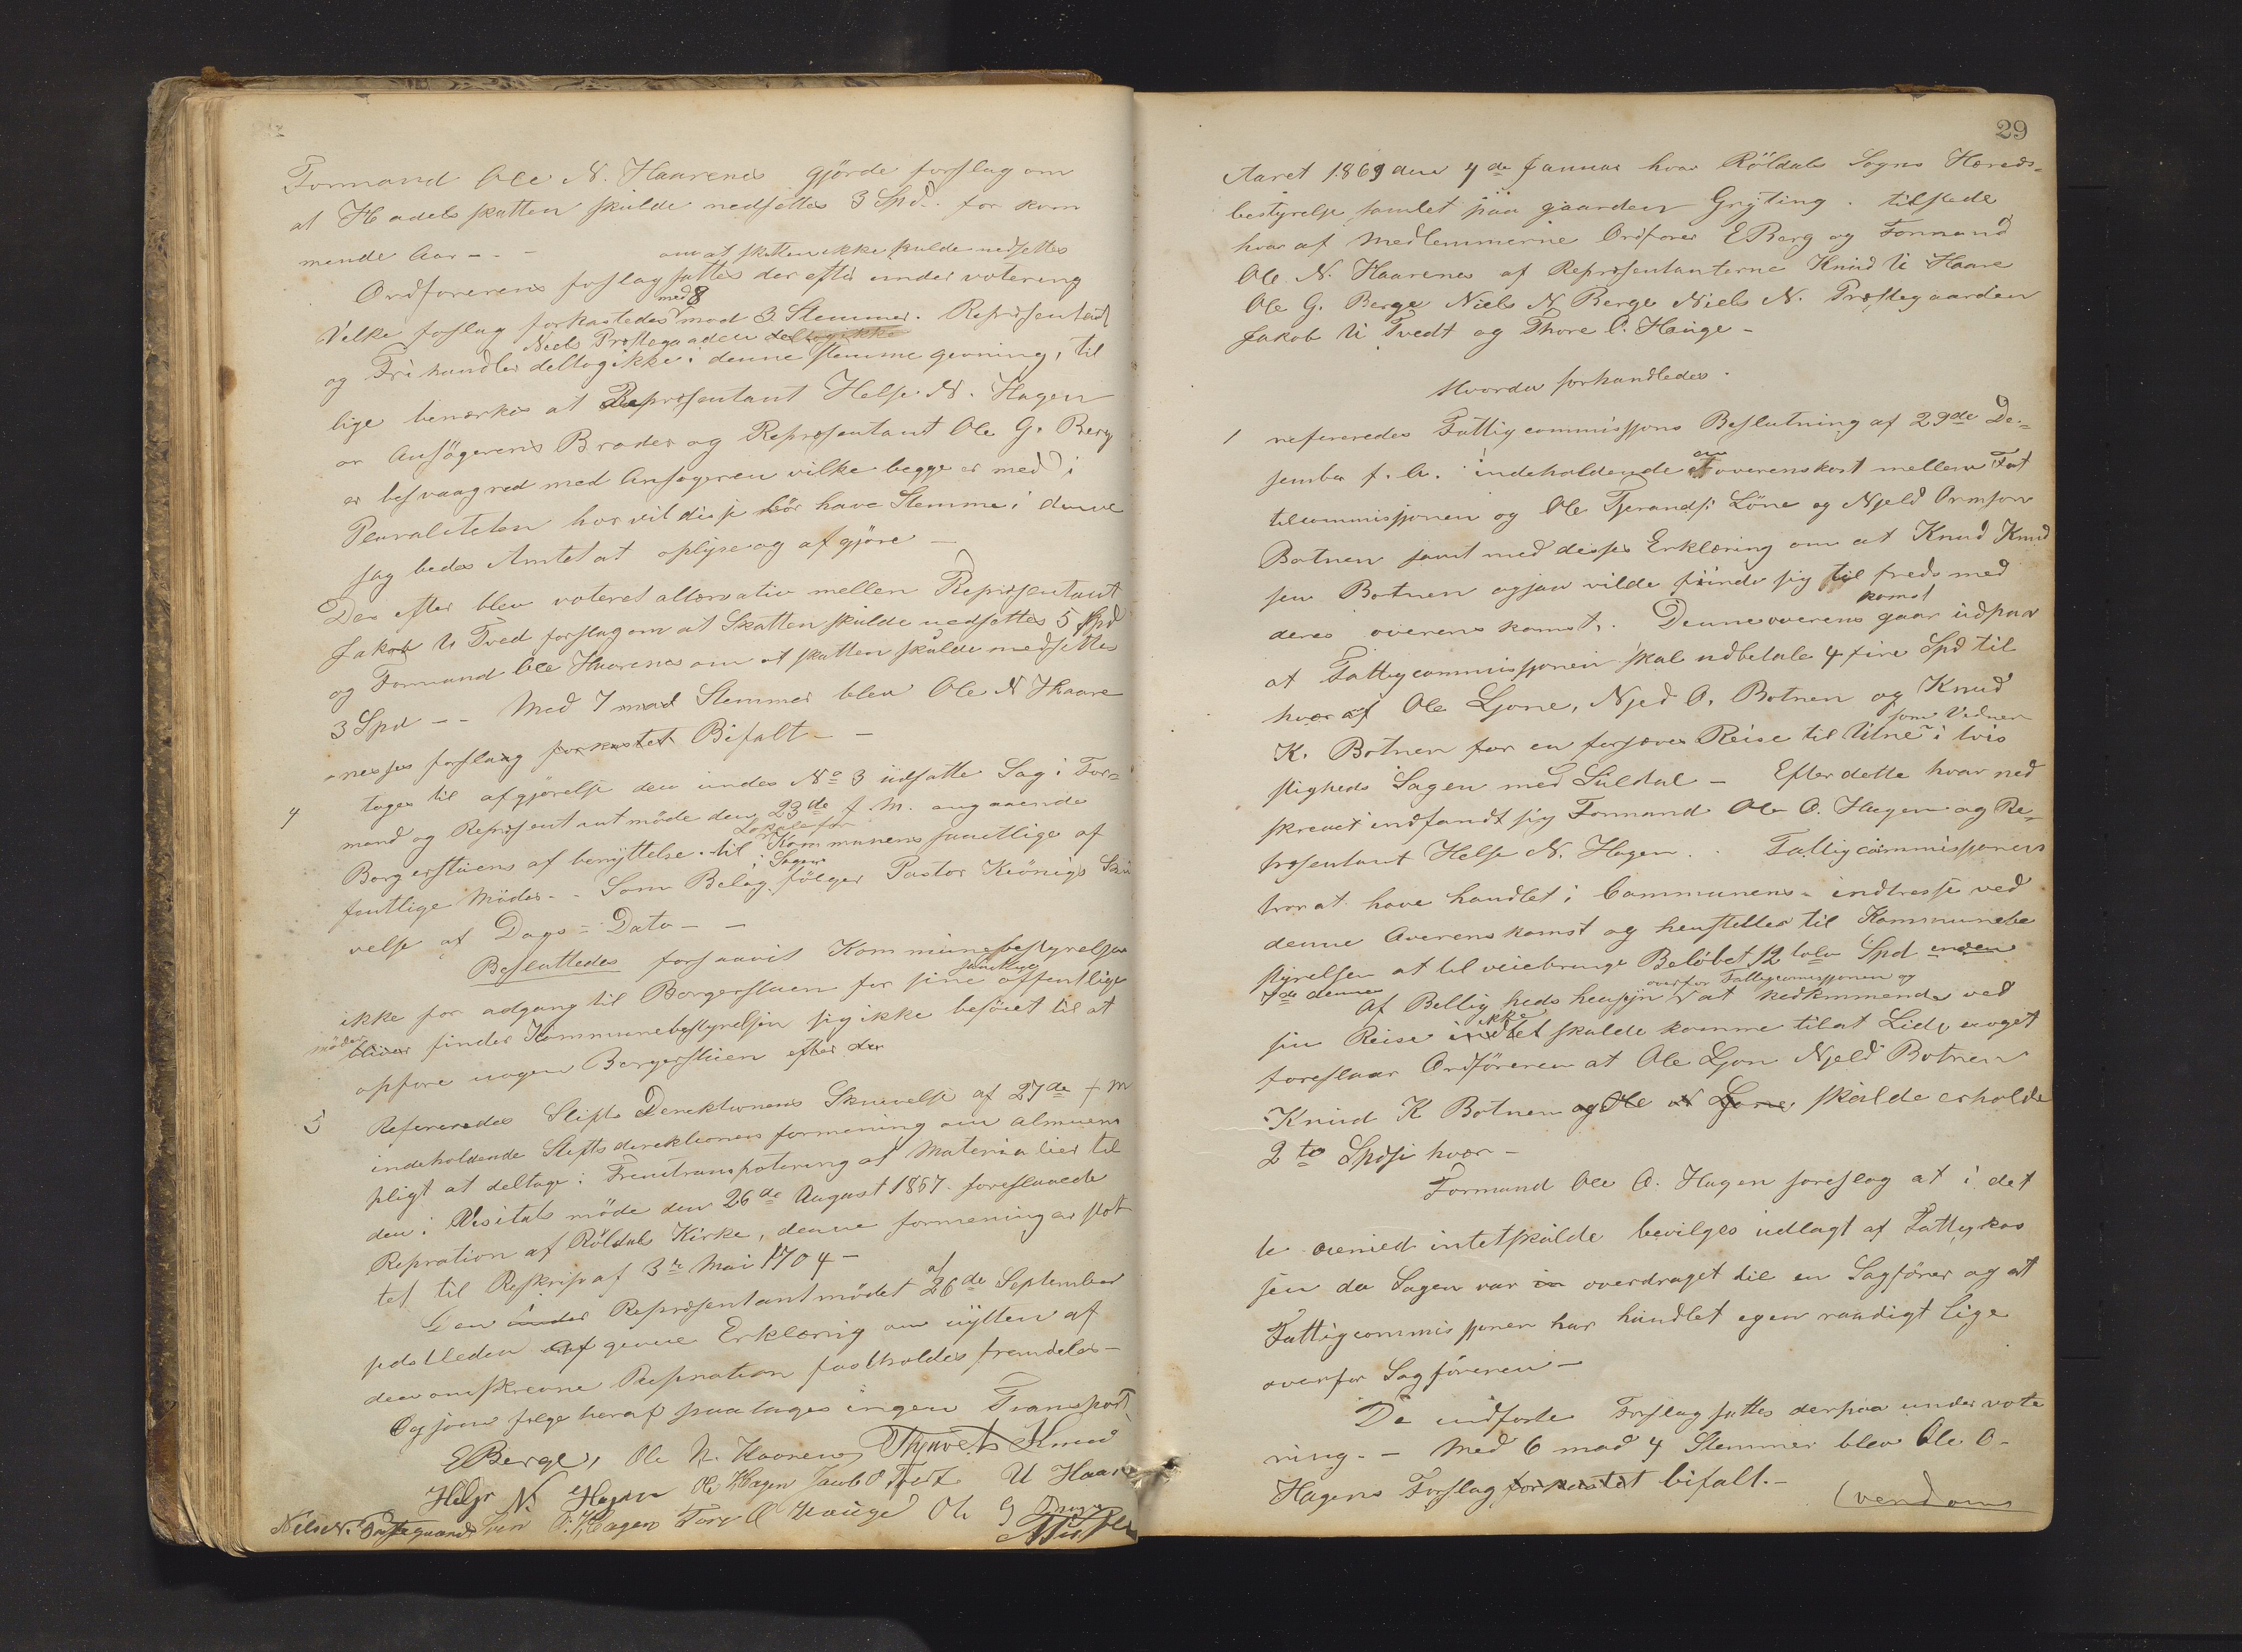 Formand Ole N. Haarenes gjörde forslag om
at Handelsskatten skulde nedsættes 3 Spd. for kom
mende Aar - . -
om at skatten ikke skulde nedsettes
Ordforerens forslag sattes der efter under votering
Vilke forslag forkastedes med 8 mod 3 Stemmer. Repræsentant
Niels Prestegaarden deltog ikke
og Fri handler deltog ikke i denne stemme gevning, til
lige bemærkes at Repræsentant Helje N. Hagen
er Ansögerens Broder og Repræsentant Ole G. Berg
er besvaagred med Ansøgeren vilke begge er med i
Pluraliteten hor vit disse bör have Stemme i denne
sag bedes Amtet at oplyse og afgjöre -
Der efter blev voteret alternativ mellem Repræsentant
Jakob U Tved forslag om at Skatten skulde nedsettes 5 Spd
og Formand Ole Haarenes om at skatten skulde nedsettes
3 Spd - - Med 7 mod Stemmer blev Ole N Haare
nesses forslaag forkastet Bifalt - -
4 toges til afgjörelse den under No 3 udsatte Sag i For-
mand og Repræsentant möde den 23de f. M. angaaende
Borgerstuens af benyttelse til Lokale for Kommunens samtlige of
fentlige Möder - . Som Belag i Sagen fölger Pastor Krönigs Skri
velse af Dags - Dato - -
Besluttedes forsaavit Kommunebestyrelsen
ikke for adgang til Borgerstuen for sine samtlige offentlige
möder bliver finder Kommunebestyrelsen sig ikke beföiet til at
opfore nogen Borgerstuen efter der
5 Refereredes Stifts Derektionens Skrivelse af 27de f M
indeholdende Stiftsderektionens formening om almuens
pligt at deltage i Fremtransportering af Materialier til
den i Visitats möde den 26de August 1867 foreslaaede
Repration af Röldals Kirke, denne formening er stöt
tet til Reskrip af 3die Mai 1704 -
Den under Repræsentantmödet af 26de September
sidstleden afgivne Erklæring om nytten af
den omskrevne Repration fastholdes fremdeles -
Og som følge heraf paatages ingen Transport
E Berge, Ole N. Haarenes Knud
Helje N. Hagen Ole Hagen Jacob U Tvedt U Haare
Niels N. Prestegaard O. Hagen Tore O Hauge Ole G
29
Aaret 1869 den 4de Januar hvar Röldals Sogns Hereds-
bestyrelse samlet paa gaarden Gryting. tilstede
hvar af Medlemmerne Ordforer E Berg og Formand
Ole N. Haarenes af Repræsentanterne Knud U Haare
Ole G. Berge Niels N Berge Niels N. Prestegaarden
Jakob U Tvedt og Thore O. Hauge -
Hvorda forhandledes.
1 refereredes Fattigcommissjons Beslutning af 29de De-
sember f. A. indeholdende en overenskost mellem Fat
tilcommissjonen og Ole Tjerands. Löne og Njeld Ormson
Botnen samt med disses Erklæring om at Knud Knud
sen Botnen ogsaa vilde finde sig til freds med
deres overens komst. Denne overens komst gaar ud paa
at Fattigcommissjonen skal udbetale 4 fire Spd til
hver af Ole Ljone, Njed O. Botnen og Knud
K. Botnen for en forgæves Reise til Utne som Vidner i tvis
stigheds Sagen med Suldal - Efter dette hvar ned
skrevet indfandt sig Formand Ole O. Hagen og Re-
præsentant Helje N. Hagen. . Fattigcommissjonen
tror at have handlet i Communens - indtresse ved
denne Overenskomst og henstiller til Kommunebe
styrelsen at til veiebringe Belöbet 12 tolv Spd inden
7de dennes
Af Billigheds hensyn overfor Fattigcomissjonen og at vedkommende ved
sin Reise indtet ikke skulde komme til at Lide noget
foreslaar Ordföreren at Ole Ljon Njeld Botnen
Knud K Botnen og Ole N Ljone skulde erholde
2 to Spdsi hver -
Formand Ole O. Hagen foreslog at i det
te øiemed intet skulde bevilges udlagt af Fattigkas
sen da Sagen var in overdraget til en Sagförer og at
Fattigcommissjonen har handlet egenraadigt lige
overfor Sagföreren -
De indforte Forslag sattes derpaa under vote
ring. - Med 6 mod 4 Stemmer blev Ole O.
Hagens Forslag forkastet bifalt. -
(vend om